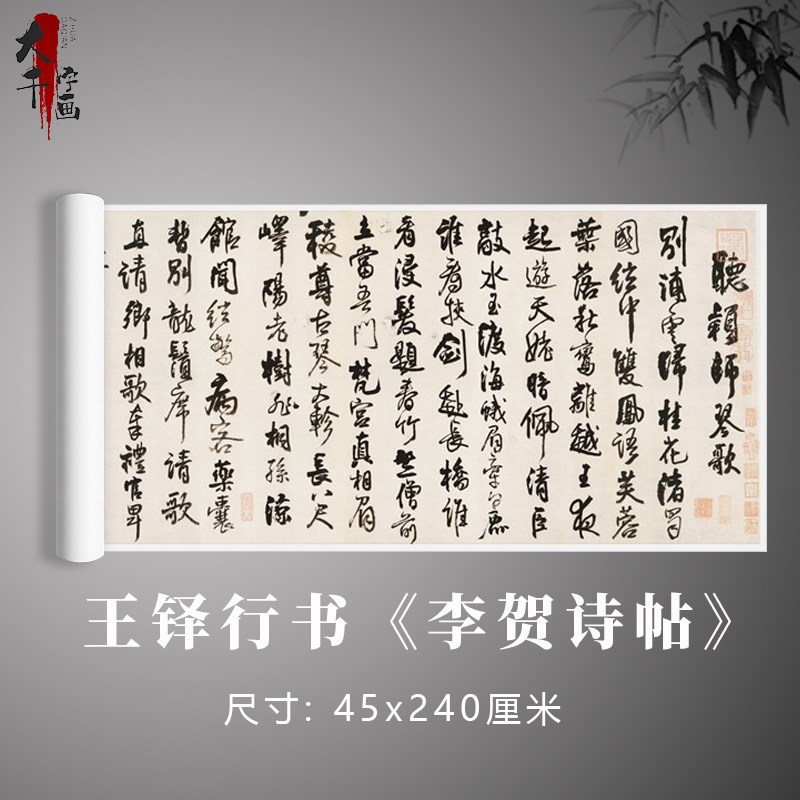 大千
字画
ZIHUA
DAQIAN
聽穎師琴歌
別浦雲歸桂花渚蜀
國弦中雙鳳語芙蓉
葉落秋鸞離越王夜
起遊天姥暗佩清臣
敲水玉渡海蛾眉牽白鹿
誰看挾劍赴長橋誰
看浸髮題春竹竺僧前
立當吾門梵宮真相眉
稜尊古琴大軫長八尺
嶧陽老樹非桐孫涼
館聞弦驚病客藥囊
暫別龍鬚席請歌
直請卿相歌奉禮官卑
王铎行书《李贺诗帖》
尺寸: 45x240厘米